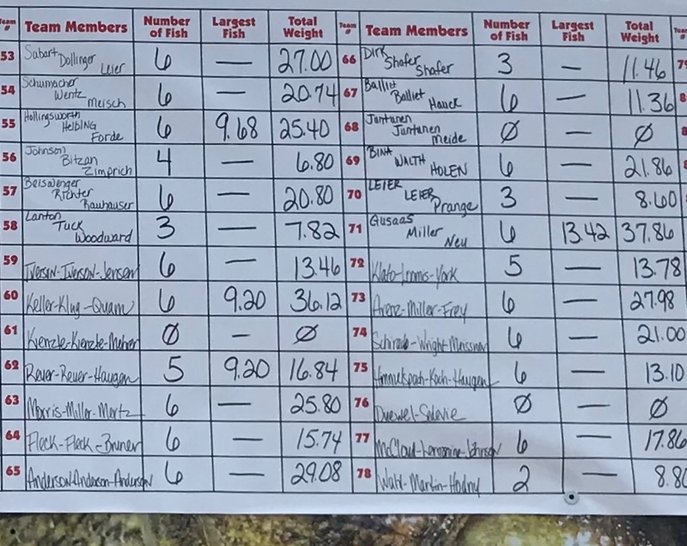 Team # Team Members Number of Fish Largest Fish Total Weight Team # Team Members Number of Fish Largest Fish Total Weight Team
53 Sabart Dollinger Leier 6 — 27.00 66 Dirk Shafer Shafer 3 — 11.46 79
54 Schumacher Wentz Meisch 6 — 20.74 67 Balliet Balliet Hauck 6 — 11.36 8
55 Hollingsworth Helbing Forde 6 9.68 25.40 68 Juntunen Juntunen Meide Ø — Ø 8
56 Johnson Bitzan Zimprich 4 — 6.80 69 BINA WALTH HOLEN 6 — 21.86 8
57 Beiswenger Richter Bauhauser 6 — 20.80 70 LEIER LEIER Prange 3 — 8.60 8
58 Lanton Tuck Woodward 3 — 7.82 71 Gusaas Miller Neu 6 13.42 37.86
59 Iverson-Iverson-Jensen 6 — 13.46 72 Klato-Loomis-York 5 — 13.78
60 Keller-Klug-Quam 6 9.20 36.12 73 Arenz-Miller-Frey 6 — 27.98
61 Kienzle-Kienzle-Maher Ø — Ø 74 Schwab-Wright-Messner 6 — 21.00
62 Reuer-Reuer-Haugen 5 9.20 16.84 75 -Koch-Haugen 6 — 13.10
63 Morris-Miller-Martz 6 — 25.80 76 Duewel- Ø — Ø
64 Fleck-Fleck-Bruner 6 — 15.74 77 McCloud- -Johnson 6 — 17.86
65 Anderson-Anderson-Anderson 6 — 29.08 78 Wahl-Martin-Hodny 2 — 8.86